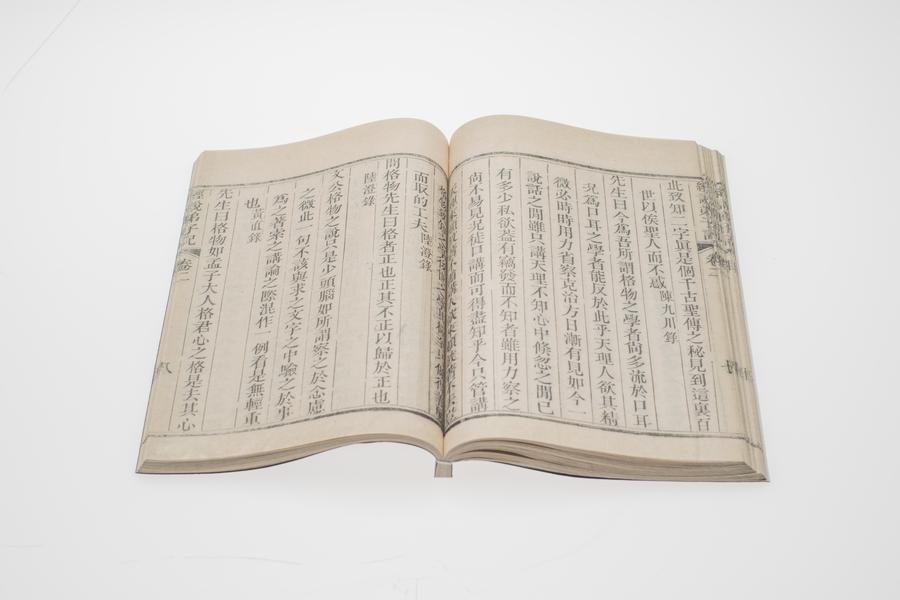 此致知二字真是個千古聖傳之秘見到這裏百
世以俟聖人而不惑 陳九川錄
先生曰今為吾所謂格物之學者尚多流於口耳
況為口耳之學者能反於此乎天理人欲其精
微必時時用力省察克治方日漸有見如今一
說話之間雖只講天理不知心中倏忽之間已
有多少私欲葢有竊發而不知者雖用力察之
尚不易見況徒口講而可得盡知乎今只管講
而取的工夫 陸澄錄
問格物先生曰格者正也正其不正以歸於正也
陸澄錄
文公格物之說只是少頭腦如所謂察之於念慮
之微此一句不該與求之文字之中驗之於事
為之著索之講論之際混作一例看是無輕重
也 黃直錄
先生曰格物如孟子大人格君心之格是去其心
經說弟子記 卷二 八